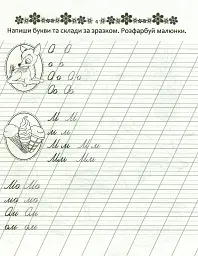 4
Напиши букви та склади за зразком. Розфарбуй малюнки.
О О
о о
Оо Оо
Оо Оо
М М
м м
Мм Мм
Мм Мм
Мо Мо
мо мо
Ом Ом
ом ом